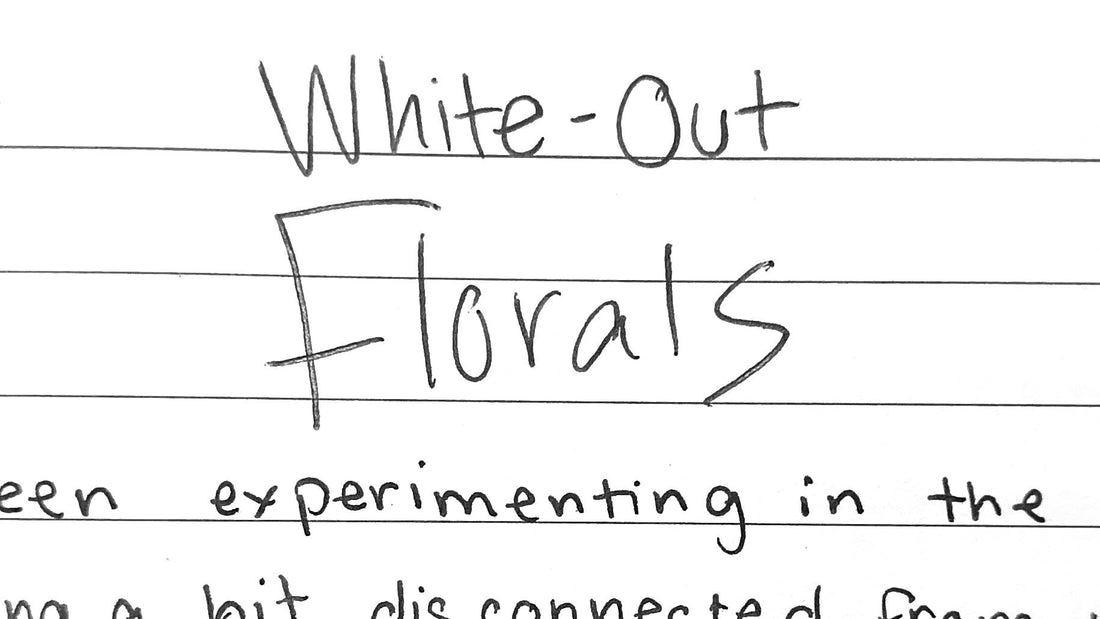 White-Out
Florals
een experimenting in the
ng a bit disconnected from